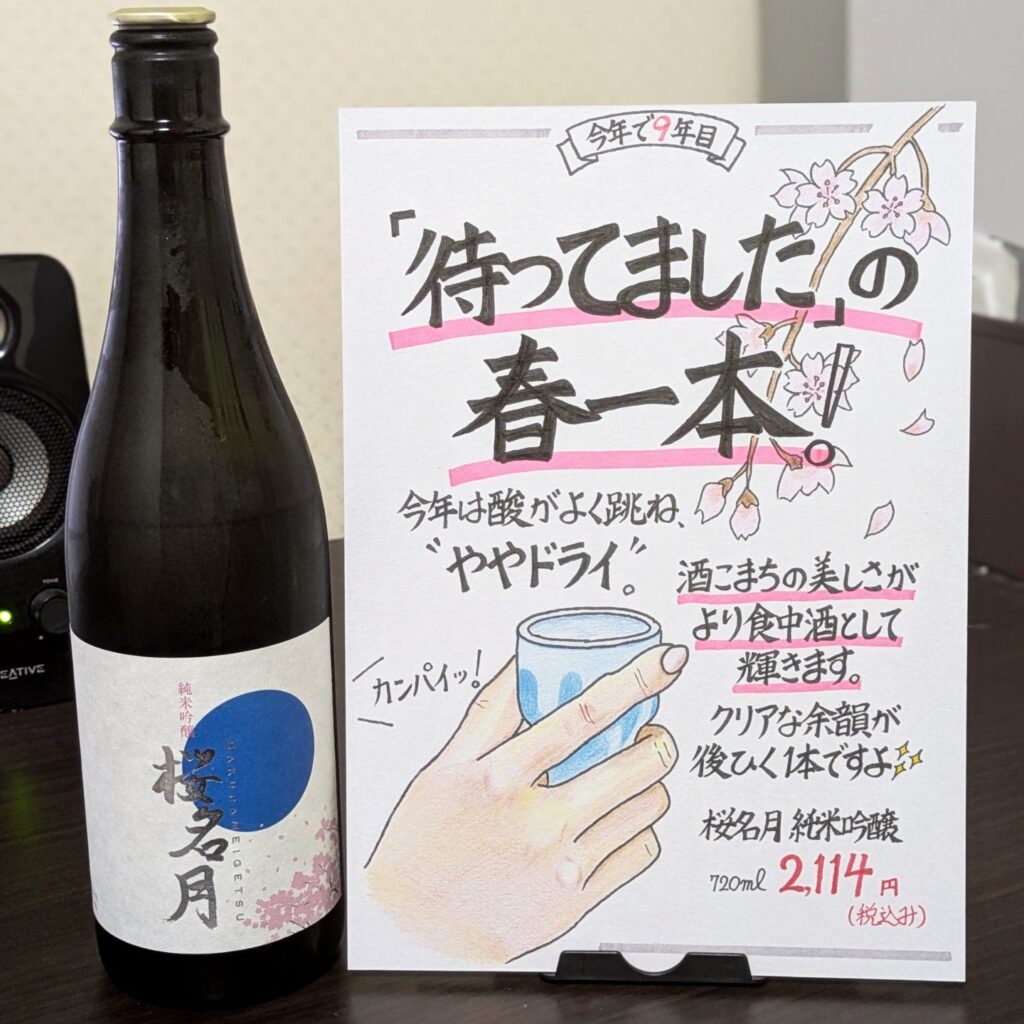 今年で9年目
「待ってました」の
春一本!。
今年は酸がよく跳ね、
"ややドライ"。
酒こまちの美しさが
より食中酒として
輝きます。
クリアな余韻が
後ひく1本ですよ
カンパイッ!
桜名月 純米吟醸
720ml 2,114円
(税込み)
純米吟醸
桜名月
SAKURAMEIGETSU
TONE
EATIVE